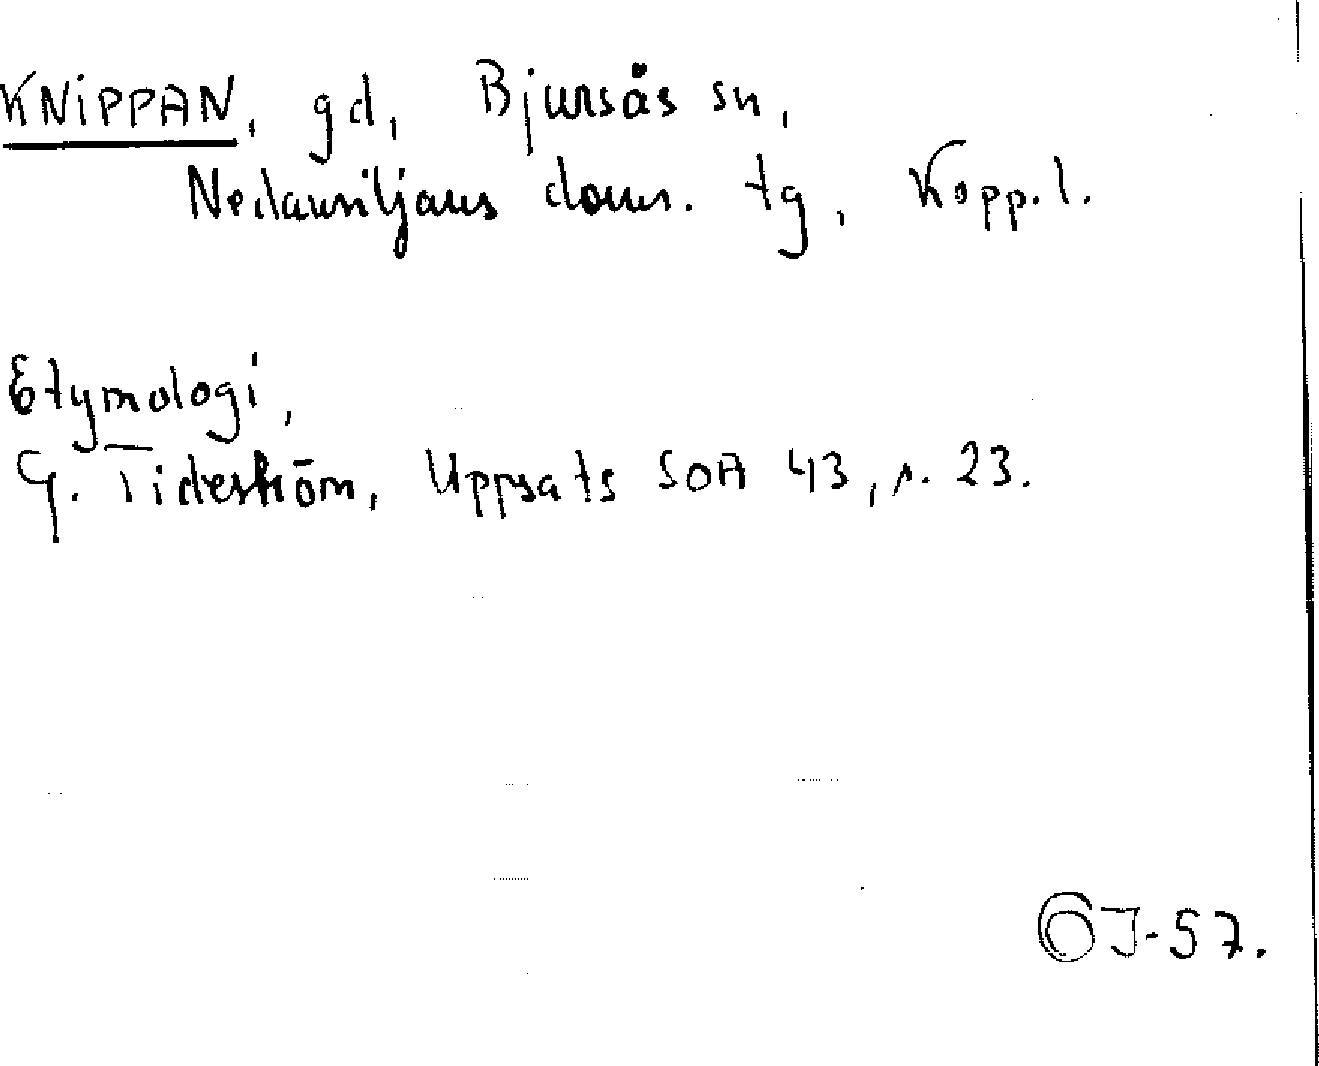 KNIPPAN, gd, Bjursås sn,
Nedansiljans doms. tg, Kopp. l.
Etymologi,
G. Tideström, Uppsats SOA 43, s. 23.
GJ-57.